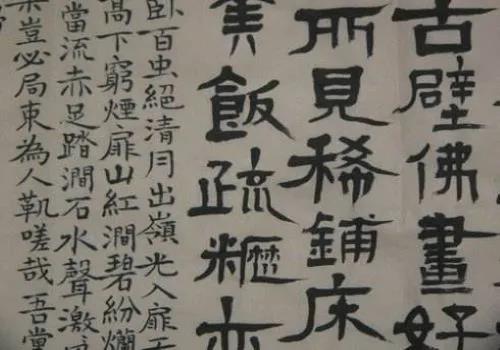 古壁佛畫好
所見稀鋪床
羹飯疏糲亦
臥百虫絕清月出嶺光入扉天
高下窮煙扉山紅澗碧紛爛
當流赤足踏澗石水聲激
豈必局束為人鞿嗟哉吾黨